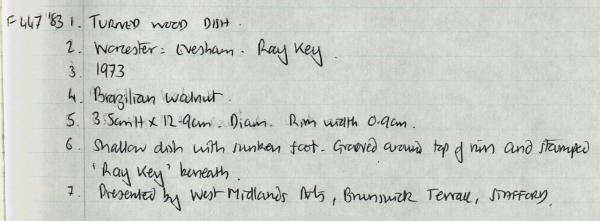 F447 '83 1. TURNED WOOD DISH.
2. Worcester: Evesham. Ray Key.
3. 1973
4. Brazilian walnut.
5. 3.5cm H x 12.9cm. Diam. Rim width 0.9cm.
6. Shallow dish with sunken foot. Grooved around top of rim and stamped
'Ray Key' beneath.
7. Presented by West Midlands Arts, Brunswick Terrace, STAFFORD.